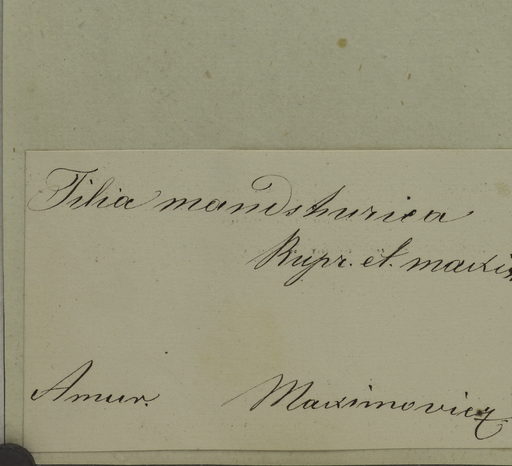 Tilia mandshurica
Rupr. et. maxim
Amur. Maximovicz